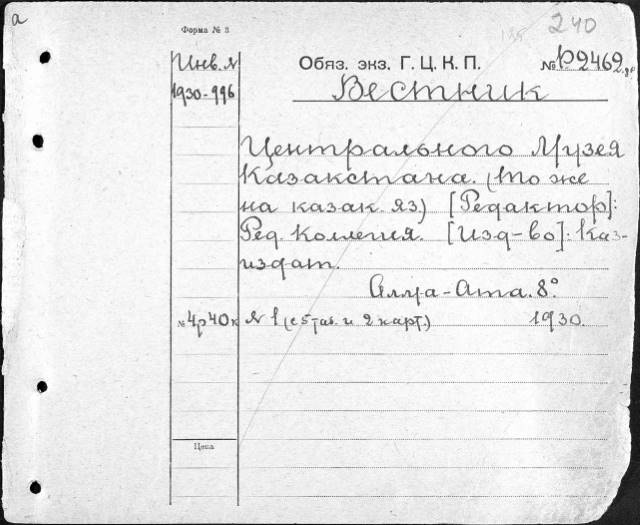 а
240
Форма № 3
Инв. №
1930-996
Обяз. экз. Г. Ц. К. П.
№ Р2462
Вестник
Центрального Музея
Казакстана. (То же
на казак. яз) [Редактор]:
Ред. Коллегия. [Изд-во]: Каз-
издат.
Алма-Ата. 8°
№ 4р40к № 1 (с 5 таб. и 2 карт.) 1930.
Цена